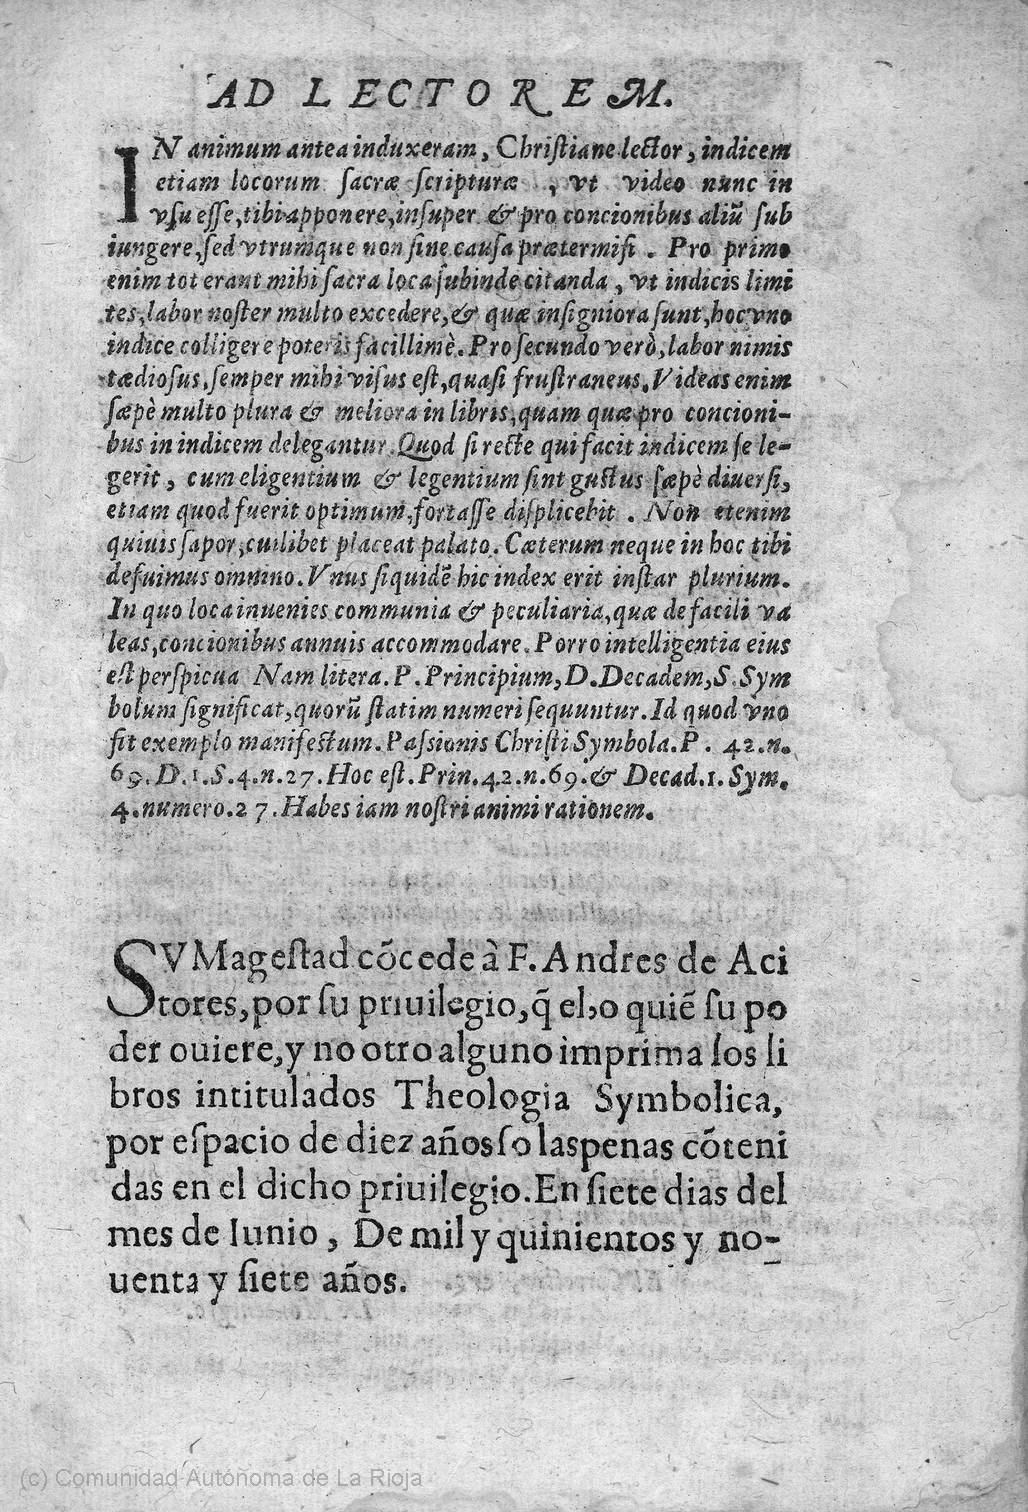 AD LECTOREM.
IN animum antea induxeram, Chriſtiane lector, indicem
etiam locorum ſacræ ſcripturæ , vt video nunc in
vſu eſſe, tibi apponere, inſuper & pro concionibus aliũ ſub
iungere, ſed vtrumque non ſine cauſa prætermiſi . Pro primo
enim tot erant mihi ſacra loca ſubinde citanda , vt indicis limi
tes, labor noſter multo excedere, & quæ inſigniora ſunt, hoc vno
indice colligere poteris facillimè. Pro ſecundo verò, labor nimis
tædioſus, ſemper mihi viſus eſt, quaſi fruſtraneus, Videas enim
ſæpè multo plura & meliora in libris, quam quæ pro concioni-
bus in indicem delegantur. Quod ſi recte qui facit indicem ſe le-
gerit , cum eligentium & legentium ſint guſtus ſæpè diuerſi,
etiam quod fuerit optimum, fortaſſe diſplicebit . Non etenim
quiuis ſapor, cuilibet placeat palato. Cæterum neque in hoc tibi
defuimus omnino. Vnus ſiquidẽ hic index erit inſtar plurium.
In quo loca inuenies communia & peculiaria, quæ de facili va
leas, concionibus annuis accommodare. Porro intelligentia eius
eſt perſpicua Nam litera. P. Principium, D. Decadem, S. Sym
bolum ſignificat, quorũ ſtatim numeri ſequuntur. Id quod vno
fit exemplo manifeſtum. Paſsionis Chriſti Symbola. P. 42. n.
69. D. 1. S. 4. n. 27. Hoc eſt. Prin. 42. n. 69. & Decad. 1. Sym.
4. numero. 27. Habes iam noſtri animi rationem.
SV Mageſtad cõcede à F. Andres de Aci
tores, por ſu priuilegio, q̃ el, o quiẽ ſu po
der ouiere, y no otro alguno imprima los li
bros intitulados Theologia Symbolica,
por eſpacio de diez años ſo las penas cõteni
das en el dicho priuilegio. En ſiete dias del
mes de Iunio , De mil y quinientos y no-
uenta y ſiete años.
(c) Comunidad Autónoma de La Rioja